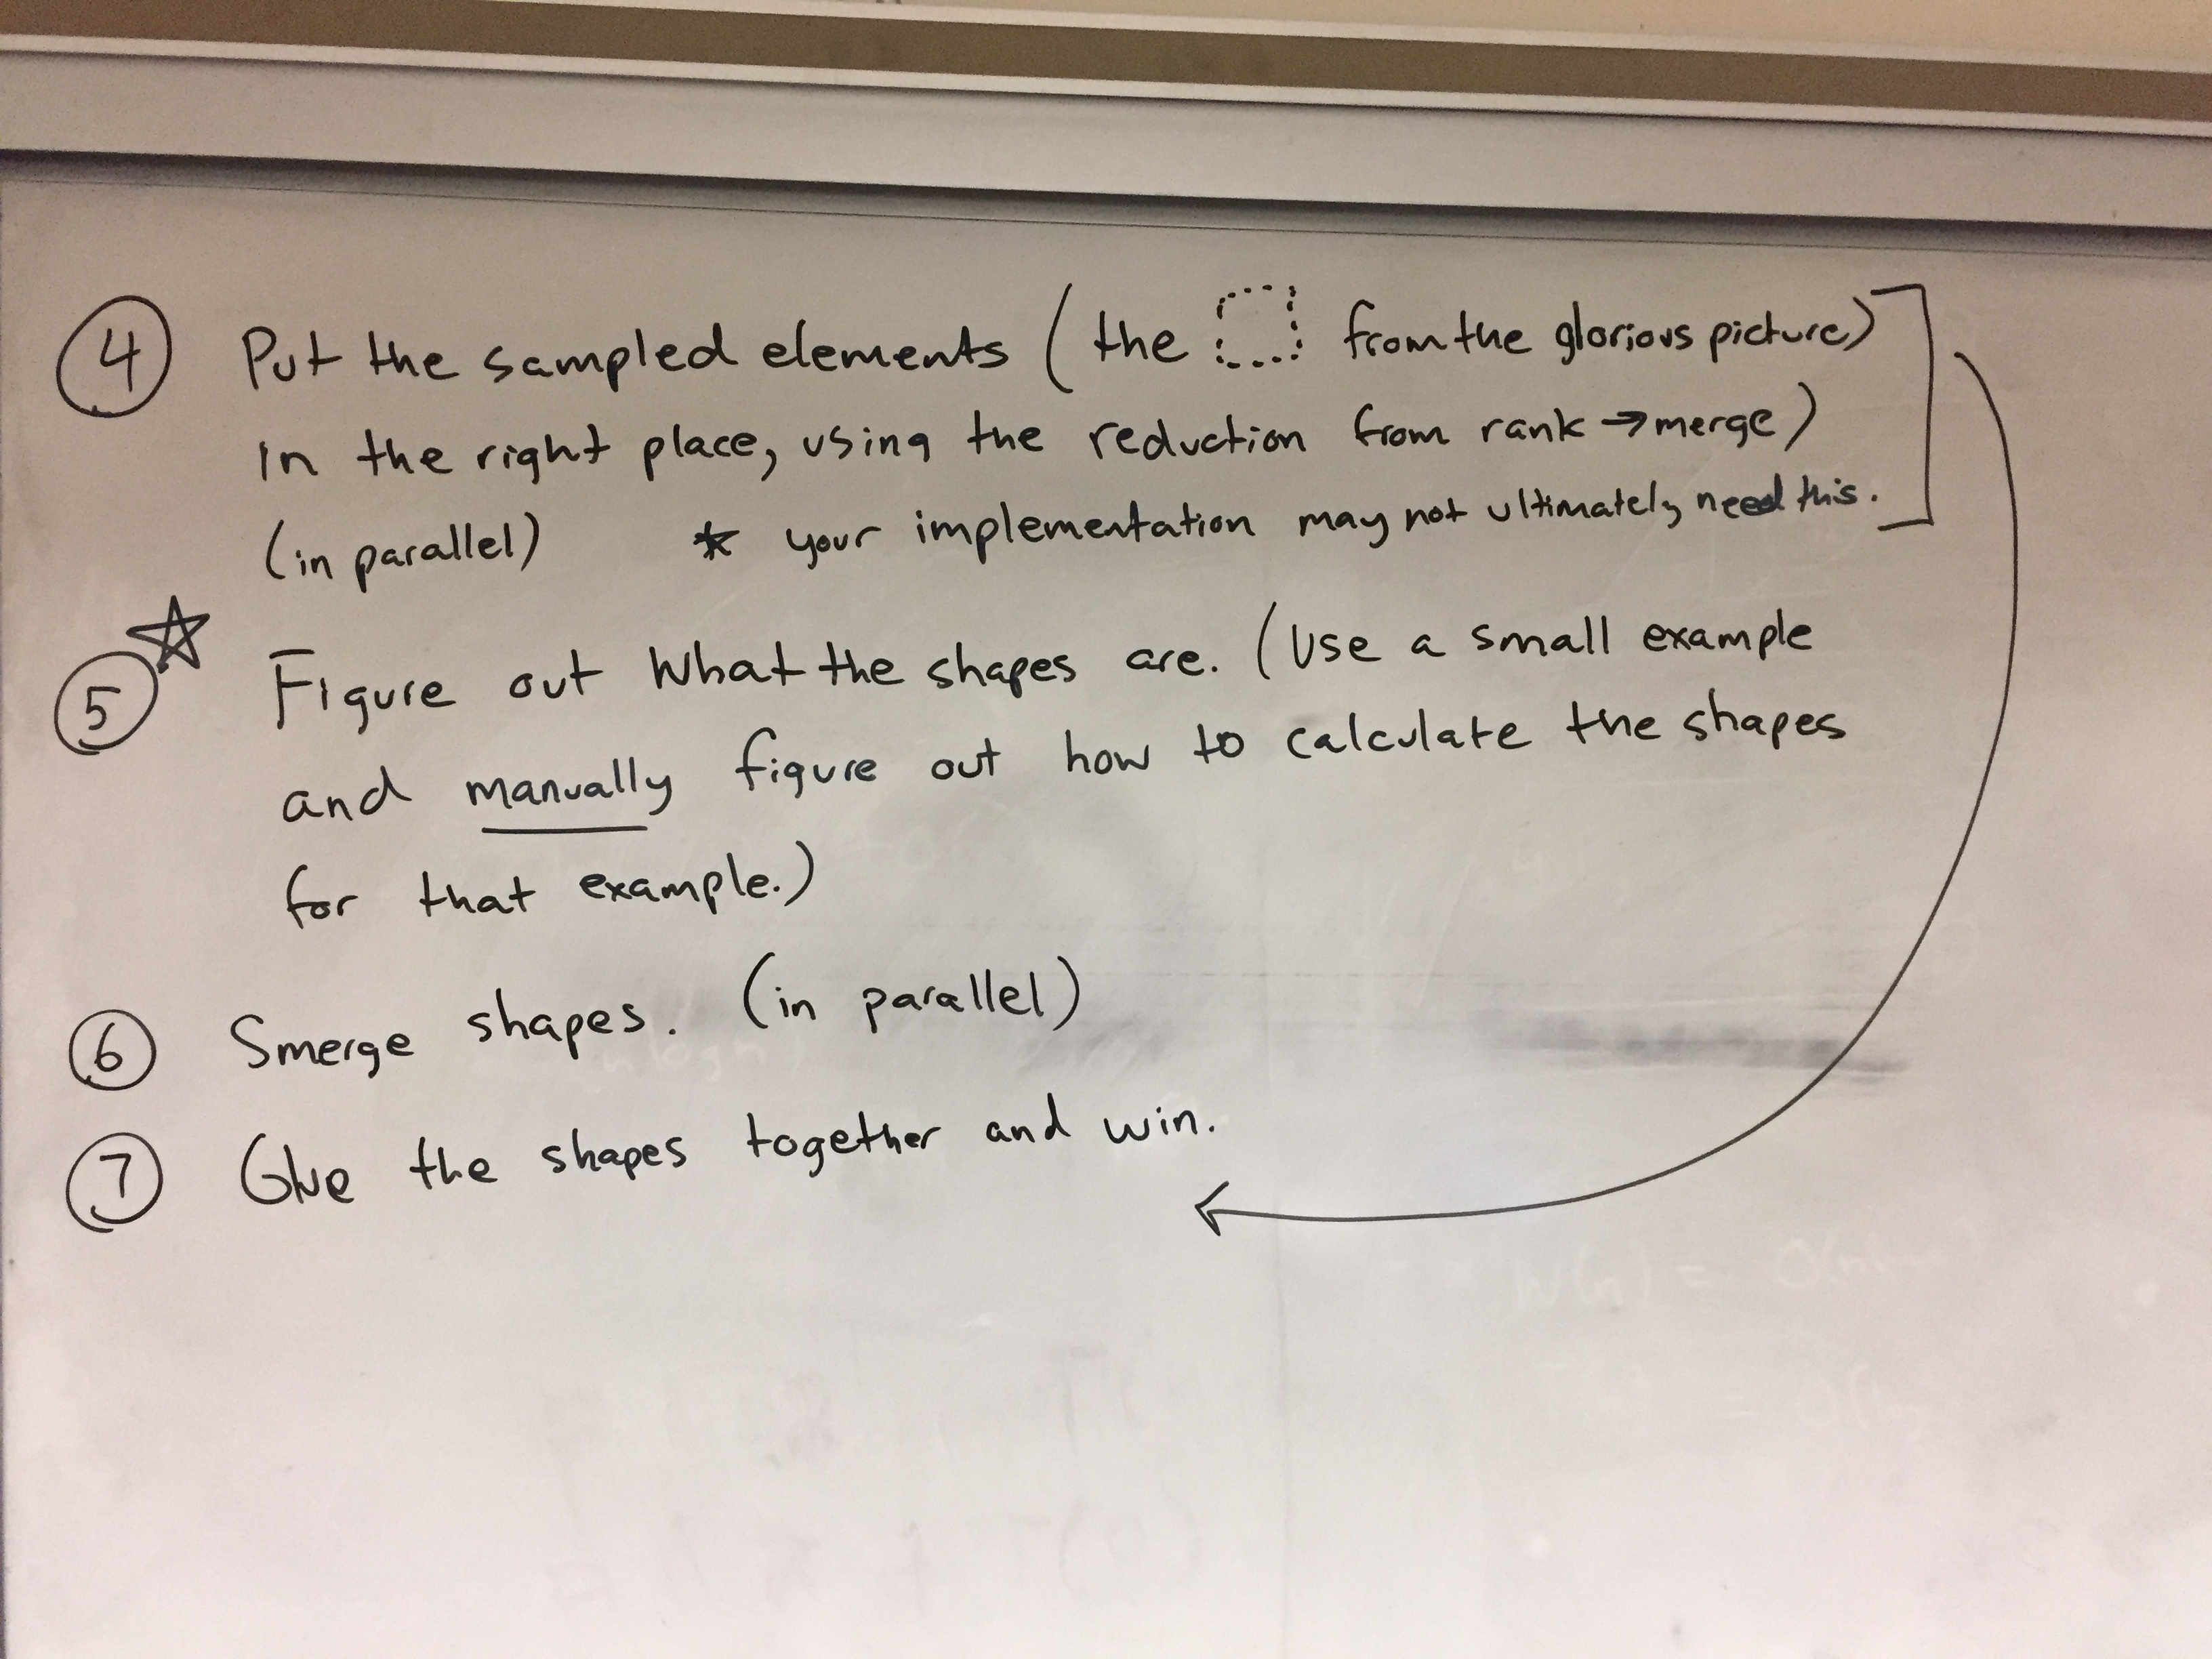 4 Put the sampled elements (the from the glorious picture)
in the right place, using the reduction from rank → merge)
(in parallel) * your implementation may not ultimately need this.
5 Figure out what the shapes are. (Use a small example
and manually figure out how to calculate the shapes
for that example.)
6 Smerge shapes. (in parallel)
7 Glue the shapes together and win.